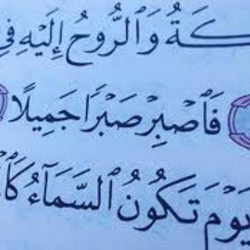 كَةُ وَٱلرُّوحُ إِلَيْهِ فِى
فَٱصْبِرْ صَبْرًا جَمِيلًا
يَوْمَ تَكُونُ ٱلسَّمَآءُ كَٱ